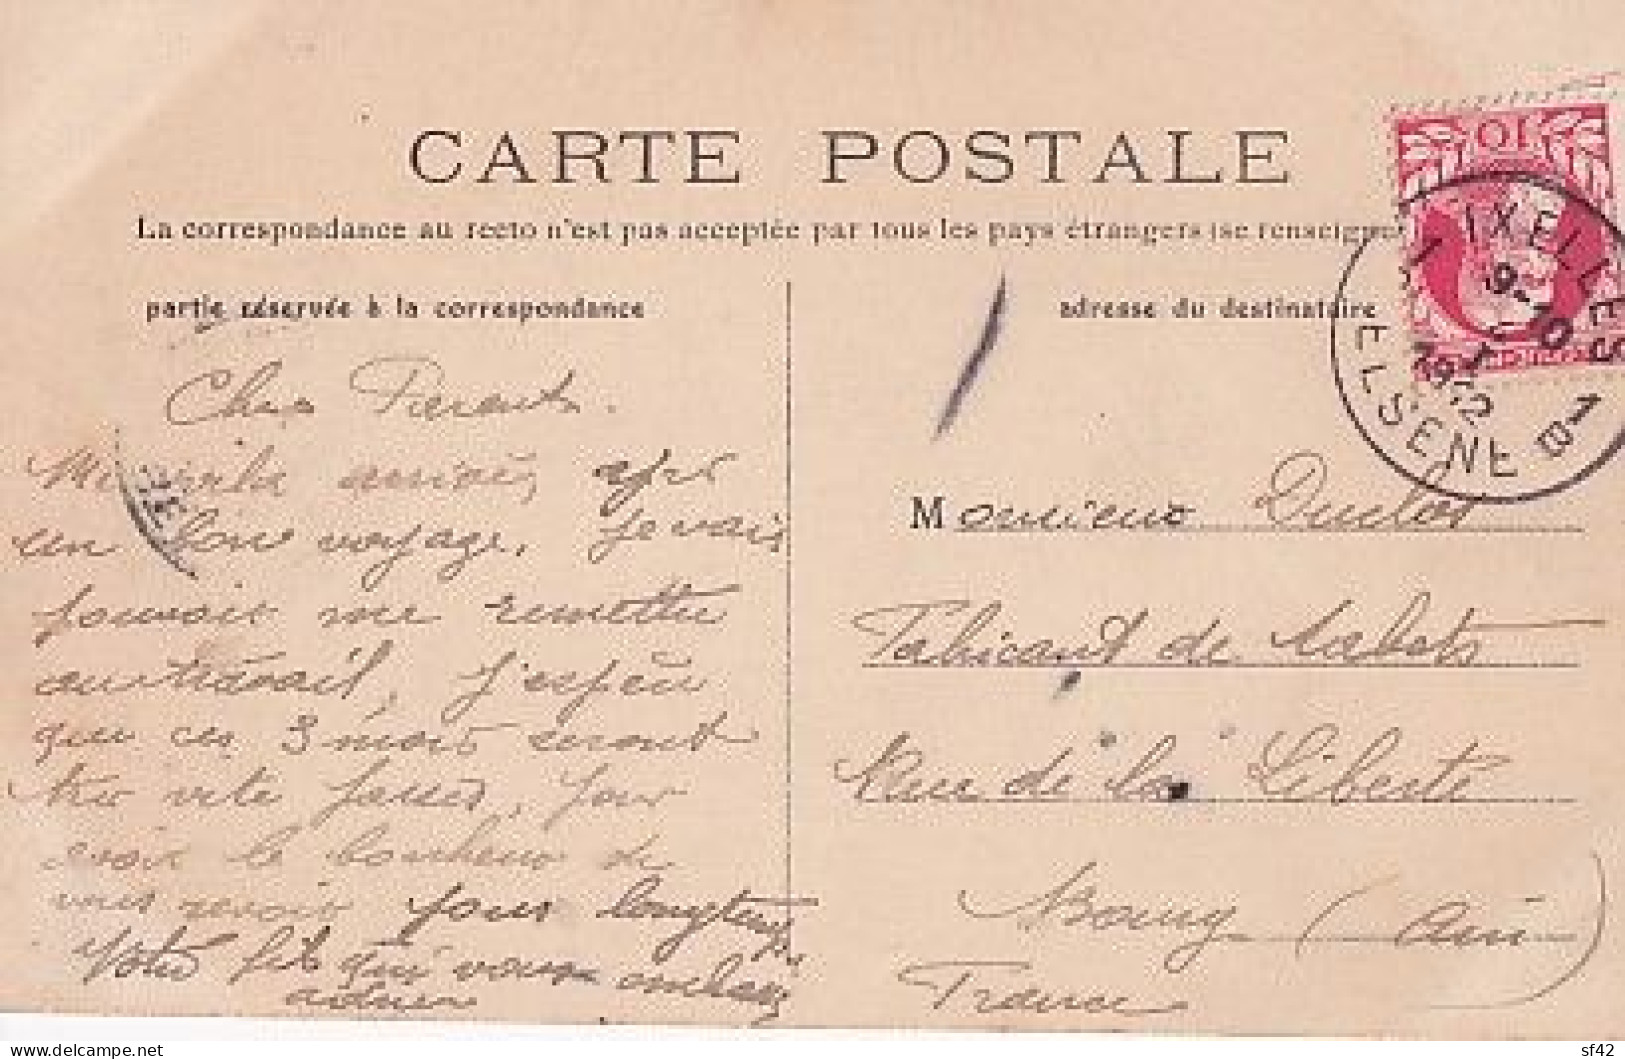 CARTE POSTALE
La correspondance au recto n'est pas acceptée par tous les pays étrangers (se renseigner
partie réservée à la correspondance
adresse du destinataire
10
IXELLES
1 9-10
1B
ELSENE
Chers Parents.
Me voila arrivé, après
un bon voyage, je vais
pouvoir me remettre
au travail, j'espère
que ces 3 mois seront
très vite passés, pour
avoir le bonheur de
vous revoir pour longtemps
Votre fils qui vous embrasse
Monsieur Duclos
Fabricant de Sabots
Rue de la Liberté
Bourg (Ain)
France
www.delcampe.net
sf42